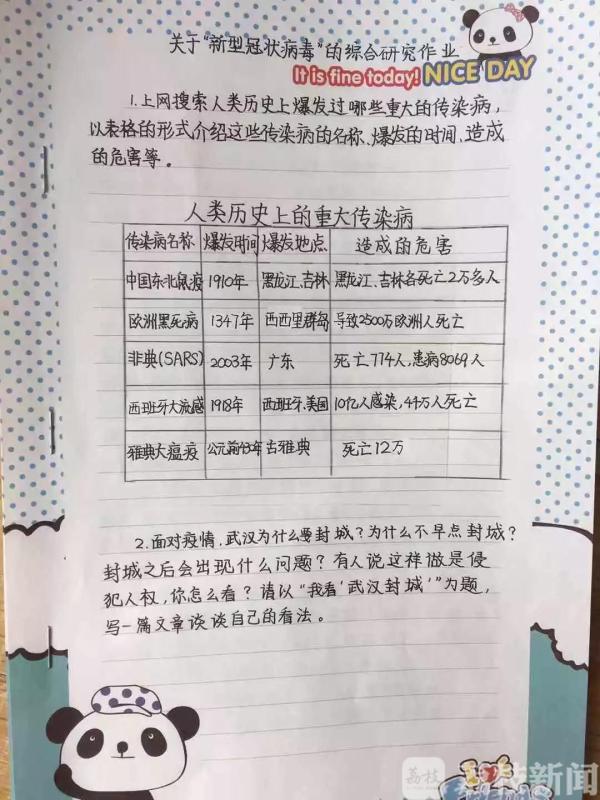 关于“新型冠状病毒”的综合研究作业
It is fine today! NICE DAY
1.上网搜索人类历史上爆发过哪些重大的传染病,
以表格的形式介绍这些传染病的名称、爆发的时间、造成
的危害等。
人类历史上的重大传染病
传染病名称 爆发时间 爆发地点 造成的危害
中国东北鼠疫 1910年 黑龙江、吉林 黑龙江、吉林各死亡2万多人
欧洲黑死病 1347年 西西里群岛 导致2500万欧洲人死亡
非典(SARS) 2003年 广东 死亡774人,患病8069人
西班牙大流感 1918年 西班牙、美国 10亿人感染, 死亡
雅典大瘟疫 古雅典 死亡12万
2.面对疫情,武汉为什么要封城?为什么不早点封城?
封城之后会出现什么问题?有人说这样做是侵
犯人权,你怎么看?请以“我看‘武汉封城’”为题,
写一篇文章谈谈自己的看法。
荔枝 荔枝新闻